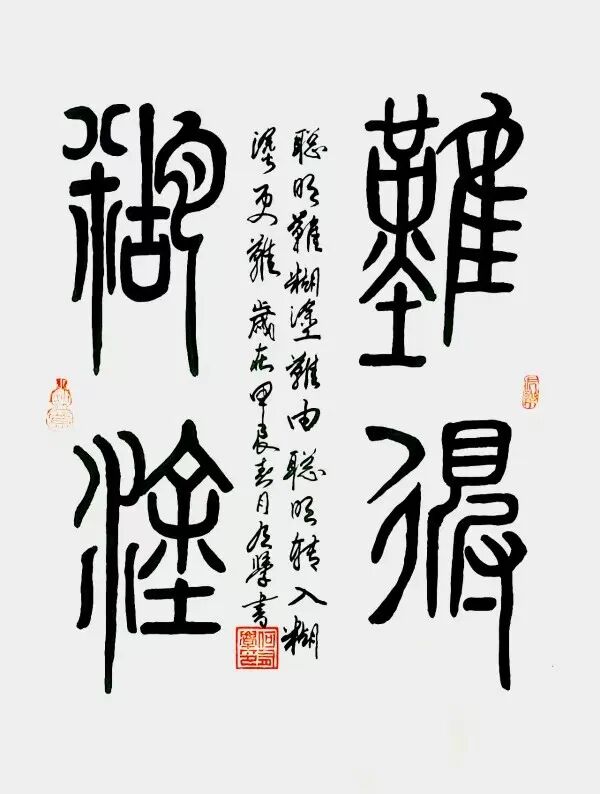 難得
糊塗
聪明難糊塗難由聪明轉入糊
塗更難 歲在甲辰春月 書